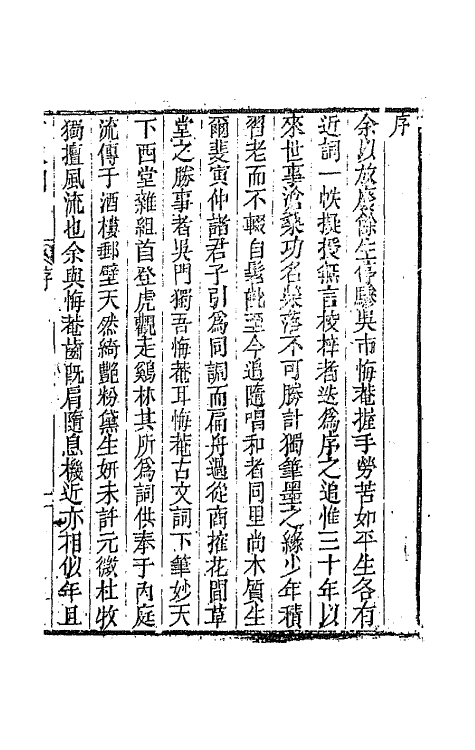 序
余以放廢餘生停驂吳市悔菴握手勞苦如平生各有
近詞一帙擬授無言棱梓者迭爲序之追惟三十年以
來世事滄桑功名槩落不可勝計獨筆墨之緣少年積
習老而不輟自髫齔至今追隨唱和者同里尚木質生
爾斐寅仲諸君子引爲同調而扁舟過從商搉花間草
堂之勝事者吳門獨吾悔菴耳悔菴古文詞下筆妙天
下西堂雜組首登虎觀走鷄林其所爲詞供奉于內庭
流傳于酒樓郵壁天然綺艷粉黛生妍未許元微杜牧
獨擅風流也余與悔菴齒旣肩隨息機近亦相似年且
序